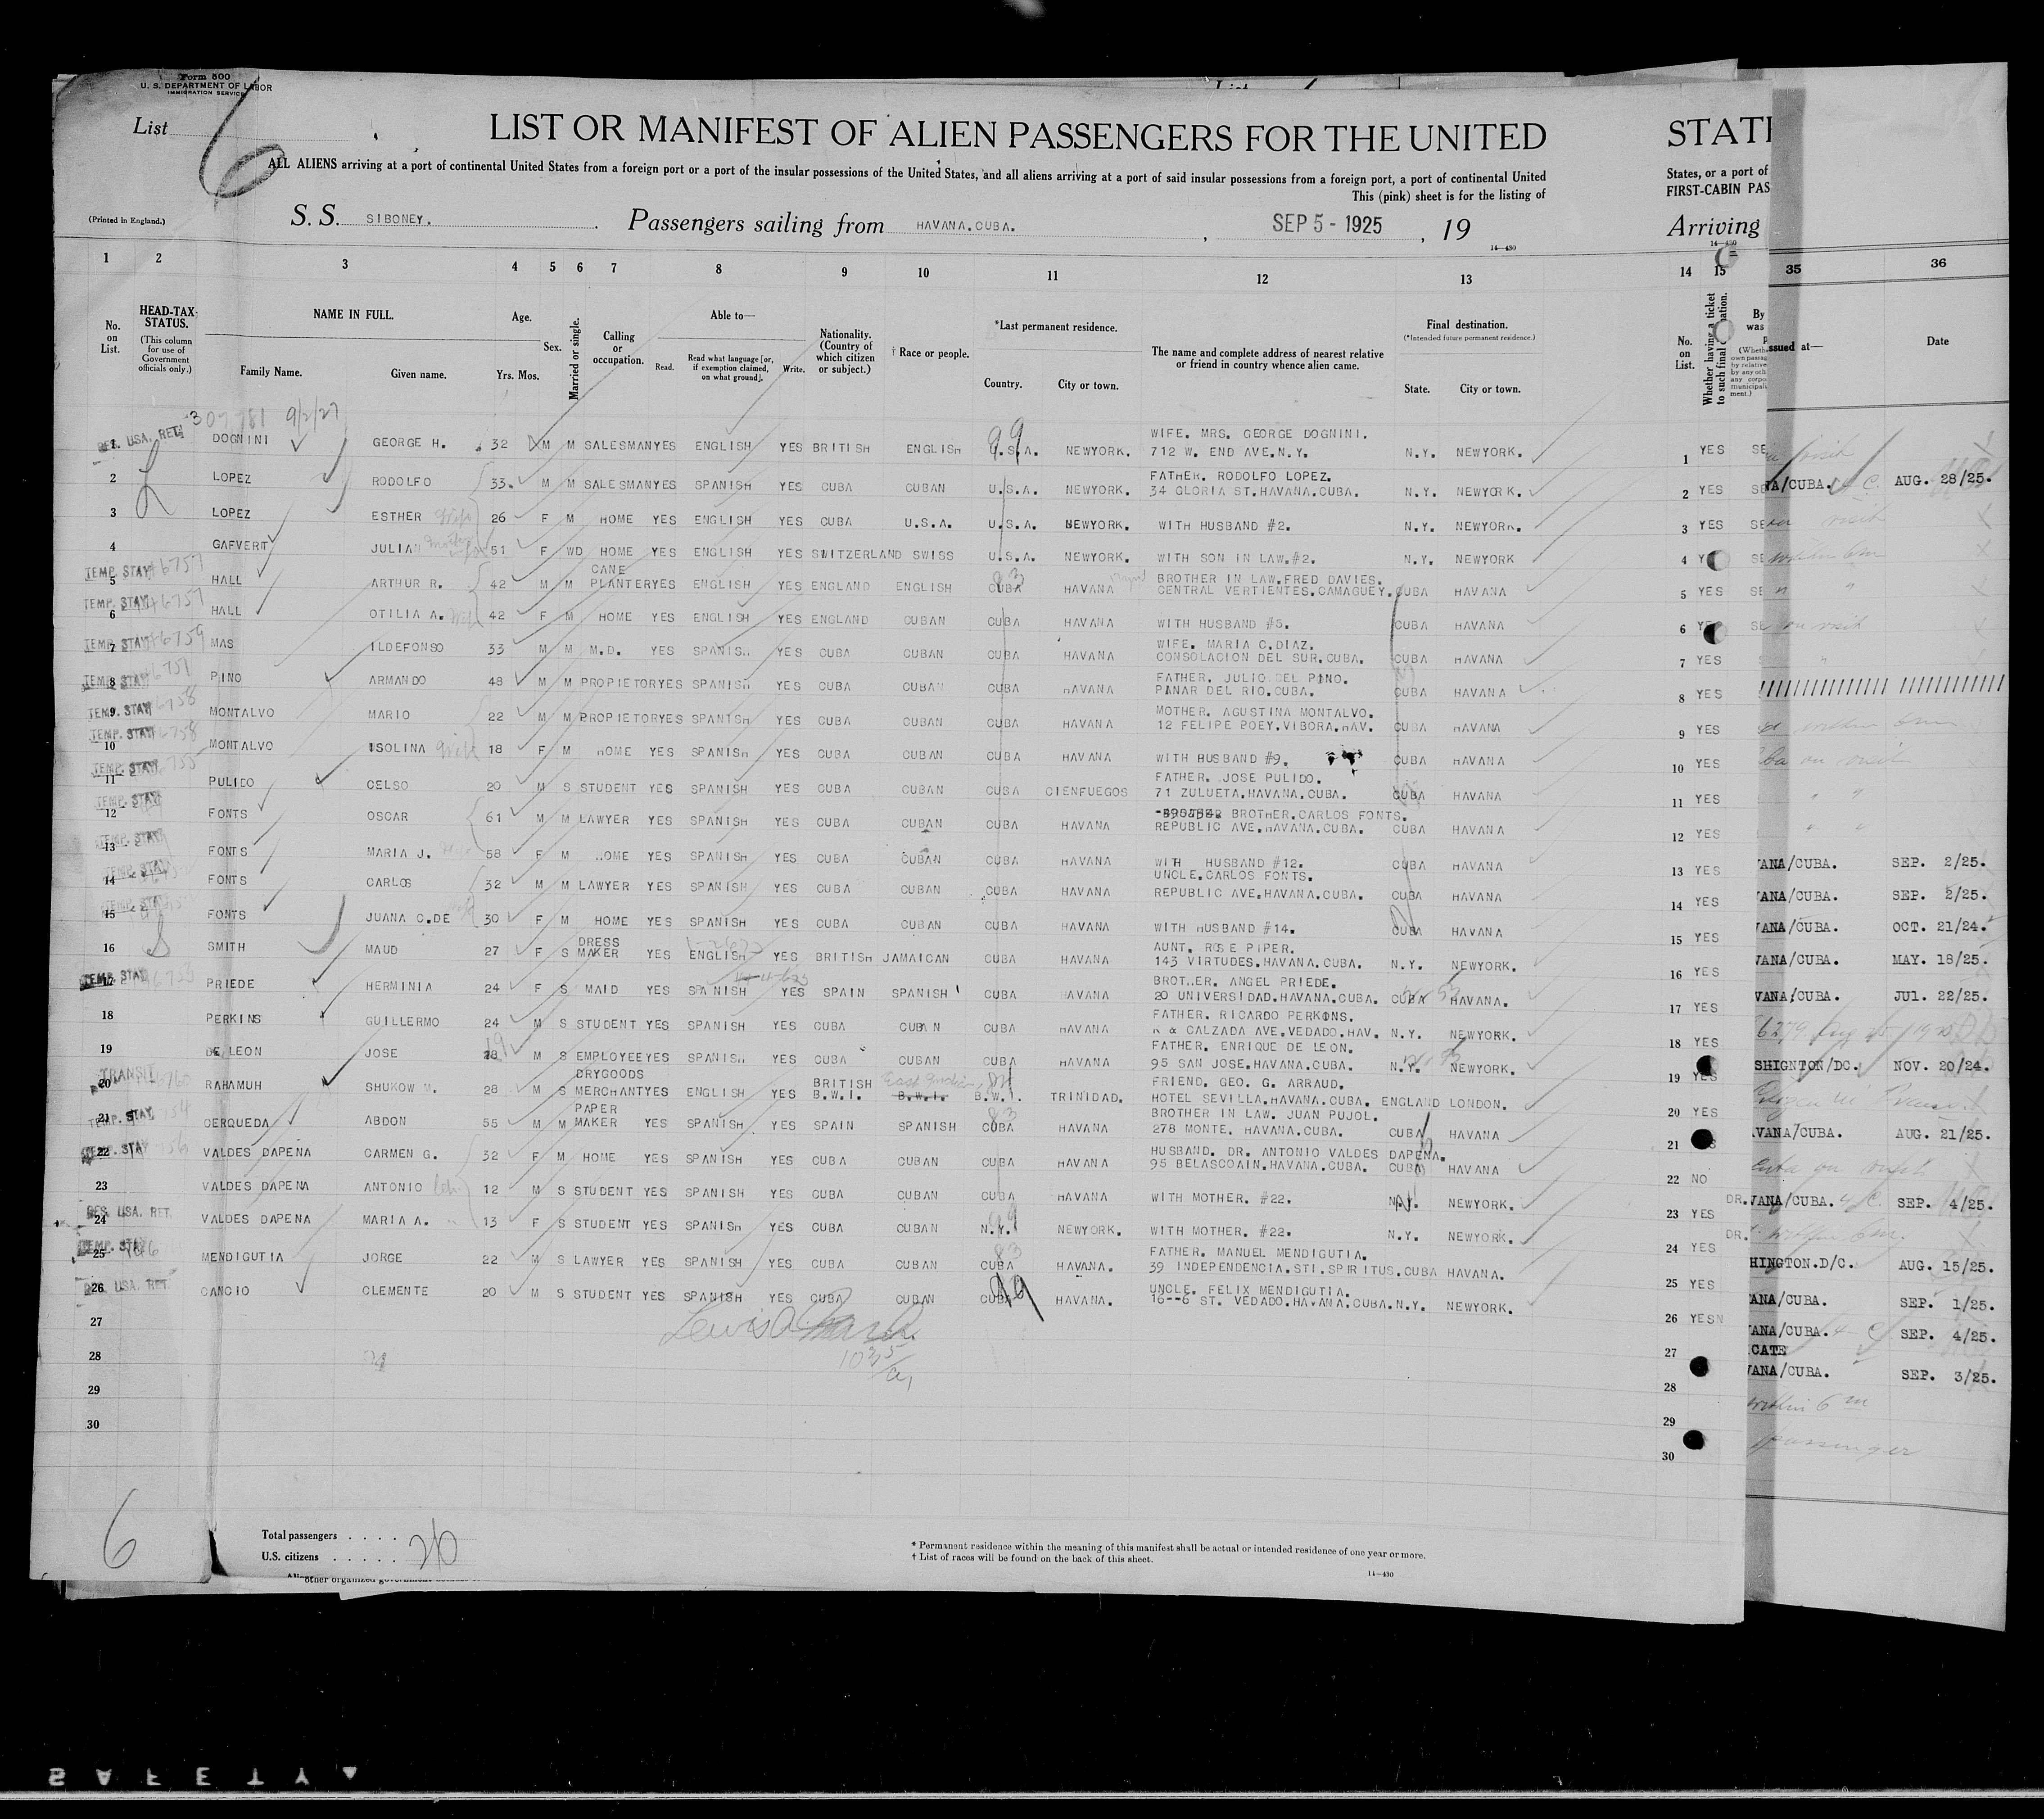 Form 500
U. S. DEPARTMENT OF LABOR
IMMIGRATION SERVICE
List 6
LIST OR MANIFEST OF ALIEN PASSENGERS FOR THE UNITED STATE
ALL ALIENS arriving at a port of continental United States from a foreign port or a port of the insular possessions of the United States, and all aliens arriving at a port of said insular possessions from a foreign port, a port of continental United States, or a port of
This (pink) sheet is for the listing of FIRST-CABIN PAS
(Printed in England.)
S. S. SIBONEY. Passengers sailing from HAVANA.CUBA. , SEP 5 - 1925 , 19 Arriving
14—430 14—430
1 2 3 4 5 6 7 8 9 10 11 12 13 14 15 35 36
No. on List.
HEAD-TAX STATUS.
(This column for use of Government officials only.)
NAME IN FULL.
Family Name. Given name.
Age.
Yrs. Mos.
Sex.
Married or single.
Calling or occupation.
Able to—
Read. Read what language [or, if exemption claimed, on what ground]. Write.
Nationality. (Country of which citizen or subject.)
† Race or people.
*Last permanent residence.
Country. City or town.
The name and complete address of nearest relative or friend in country whence alien came.
Final destination.
(*Intended future permanent residence.)
State. City or town.
No. on List.
Whether having a ticket to such final
By was
ssued at—
Date
307781 9/2/27
RES. USA. RET. 1 DOGNINI GEORGE H. 32 M M SALESMAN YES ENGLISH YES BRITISH ENGLISH U.S.A. NEWYORK. WIFE. MRS. GEORGE DOGNINI.
712 W. END AVE.N.Y. N.Y. NEWYORK. 1 YES
2 LOPEZ RODOLFO 33. M M SALESMAN YES SPANISH YES CUBA CUBAN U.S.A. NEWYORK. FATHER. RODOLFO LOPEZ.
34 GLORIA ST.HAVANA.CUBA. N.Y. NEWYORK. 2 YES
3 LOPEZ ESTHER wife 26 F M HOME YES ENGLISH YES CUBA U.S.A. U.S.A. NEWYORK. WITH HUSBAND #2. N.Y. NEWYORK. 3 YES
4 GAFVERT JULIA 51 F WD HOME YES ENGLISH YES SWITZERLAND SWISS U.S.A. NEWYORK. WITH SON IN LAW.#2. N.Y. NEWYORK 4
TEMP. STAY 5 HALL ARTHUR R. 42 M M CANE PLANTER YES ENGLISH YES ENGLAND ENGLISH CUBA HAVANA BROTHER IN LAW.FRED DAVIES.
CENTRAL VERTIENTES.CAMAGUEY. CUBA HAVANA 5 YES
TEMP. STAY 6 HALL OTILIA A. wife 42 F M HOME YES ENGLISH YES ENGLAND CUBAN CUBA HAVANA WITH HUSBAND #5. CUBA HAVANA 6
TEMP. STAY 7 MAS ILDEFONSO 33 M M M.D. YES SPANISH YES CUBA CUBAN CUBA HAVANA WIFE. MARIA C.DIAZ.
CONSOLACION DEL SUR.CUBA. CUBA HAVANA 7 YES
TEMP. STAY 8 PINO ARMANDO 48 M M PROPIETOR YES SPANISH YES CUBA CUBAN CUBA HAVANA FATHER. JULIO DEL PINO.
PINAR DEL RIO.CUBA. CUBA HAVANA 8 YES
TEMP. STAY 9 MONTALVO MARIO 22 M M PROPIETOR YES SPANISH YES CUBA CUBAN CUBA HAVANA MOTHER. AGUSTINA MONTALVO.
12 FELIPE POEY.VIBORA.HAV. CUBA HAVANA 9 YES
TEMP. STAY 10 MONTALVO ISOLINA wife 18 F M HOME YES SPANISH YES CUBA CUBAN CUBA HAVANA WITH HUSBAND #9. CUBA HAVANA 10 YES
TEMP. STAY 11 PULIDO CELSO 20 M S STUDENT YES SPANISH YES CUBA CUBAN CUBA CIENFUEGOS FATHER. JOSE PULIDO.
71 ZULUETA.HAVANA.CUBA. CUBA HAVANA 11 YES
TEMP. STAY 12 FONTS OSCAR 61 M M LAWYER YES SPANISH YES CUBA CUBAN CUBA HAVANA BROTHER.CARLOS FONTS.
REPUBLIC AVE.HAVANA.CUBA. CUBA HAVANA 12 YES
TEMP. STAY 13 FONTS MARIA J. 58 F M HOME YES SPANISH YES CUBA CUBAN CUBA HAVANA WITH HUSBAND #12. CUBA HAVANA 13 YES
TEMP. STAY 14 FONTS CARLOS 32 M M LAWYER YES SPANISH YES CUBA CUBAN CUBA HAVANA UNCLE.CARLOS FONTS.
REPUBLIC AVE.HAVANA.CUBA. CUBA HAVANA 14 YES
TEMP. STAY 15 FONTS JUANA C.DE 30 F M HOME YES SPANISH YES CUBA CUBAN CUBA HAVANA WITH HUSBAND #14. CUBA HAVANA 15 YES
16 SMITH MAUD 27 F S DRESS MAKER YES ENGLISH YES BRITISH JAMAICAN CUBA HAVANA AUNT. ROSE PIPER.
143 VIRTUDES.HAVANA.CUBA. N.Y. NEWYORK. 16 YES
TEMP. STAY 17 PRIEDE HERMINIA 24 F S MAID YES SPANISH YES SPAIN SPANISH CUBA HAVANA BROTHER. ANGEL PRIEDE.
20 UNIVERSIDAD.HAVANA.CUBA. CUBA HAVANA. 17 YES
18 PERKINS GUILLERMO 24 M S STUDENT YES SPANISH YES CUBA CUBAN CUBA HAVANA FATHER. RICARDO PERKINS.
K & CALZADA AVE.VEDADO.HAV. N.Y. NEWYORK. 18 YES
19 DE LEON JOSE 19 M S EMPLOYEE YES SPANISH YES CUBA CUBAN CUBA HAVANA FATHER. ENRIQUE DE LEON.
95 SAN JOSE.HAVANA.CUBA. N.Y. NEWYORK. 19 YES
TRANSIT 20 RAHAMUH SHUKOW M. 28 M S DRYGOODS MERCHANT YES ENGLISH YES BRITISH B.W.I. East Indian B.W.I. B.W.I. TRINIDAD. FRIEND. GEO. G. ARRAUD.
HOTEL SEVILLA.HAVANA.CUBA. ENGLAND LONDON. 20 YES
TEMP. STAY 21 CERQUEDA ABDON 55 M M PAPER MAKER YES SPANISH YES SPAIN SPANISH CUBA HAVANA BROTHER IN LAW. JUAN PUJOL.
278 MONTE. HAVANA.CUBA. CUBA HAVANA 21
TEMP. STAY 22 VALDES DAPENA CARMEN G. 32 F M HOME YES SPANISH YES CUBA CUBAN CUBA HAVANA HUSBAND. DR. ANTONIO VALDES DAPENA.
95 BELASCOAIN.HAVANA.CUBA. CUBA HAVANA 22 NO
23 VALDES DAPENA ANTONIO 12 M S STUDENT YES SPANISH YES CUBA CUBAN CUBA HAVANA WITH MOTHER. #22. N.Y. NEWYORK. 23 YES
RES. USA. RET. 24 VALDES DAPENA MARIA A. 13 F S STUDENT YES SPANISH YES CUBA CUBAN N.Y. NEWYORK. WITH MOTHER. #22. N.Y. NEWYORK. 24 YES
TEMP. STAY 25 MENDIGUTIA JORGE 22 M S LAWYER YES SPANISH YES CUBA CUBAN CUBA HAVANA. FATHER. MANUEL MENDIGUTIA.
39 INDEPENDENCIA.STI.SPIRITUS.CUBA HAVANA. 25 YES
RES. USA. RET. 26 CANCIO CLEMENTE 20 M S STUDENT YES SPANISH YES CUBA CUBAN CUBA HAVANA. UNCLE. FELIX MENDIGUTIA.
16--6 ST. VEDADO.HAVANA.CUBA. N.Y. NEWYORK. 26 YES
27 27
28 28
29 29
30 30
A/CUBA. AUG. 28/25.
VANA/CUBA. SEP. 2/25.
VANA/CUBA. SEP. 2/25.
VANA/CUBA. OCT. 21/24.
VANA/CUBA. MAY. 18/25.
VANA/CUBA. JUl. 22/25.
SHIGNTON/DC. NOV. 20/24.
VANA/CUBA. AUG. 21/25.
DR. VANA/CUBA. SEP. 4/25.
DR.
HINGTON.D/C. AUG. 15/25.
ANA/CUBA. SEP. 1/25.
ANA/CUBA. SEP. 4/25.
CATE
VANA/CUBA. SEP. 3/25.
within 6 m
passenger
6
Total passengers . . . .
U.S. citizens . . . . . 26
* Permanent residence within the meaning of this manifest shall be actual or intended residence of one year or more.
† List of races will be found on the back of this sheet.
14—430
SAFETY